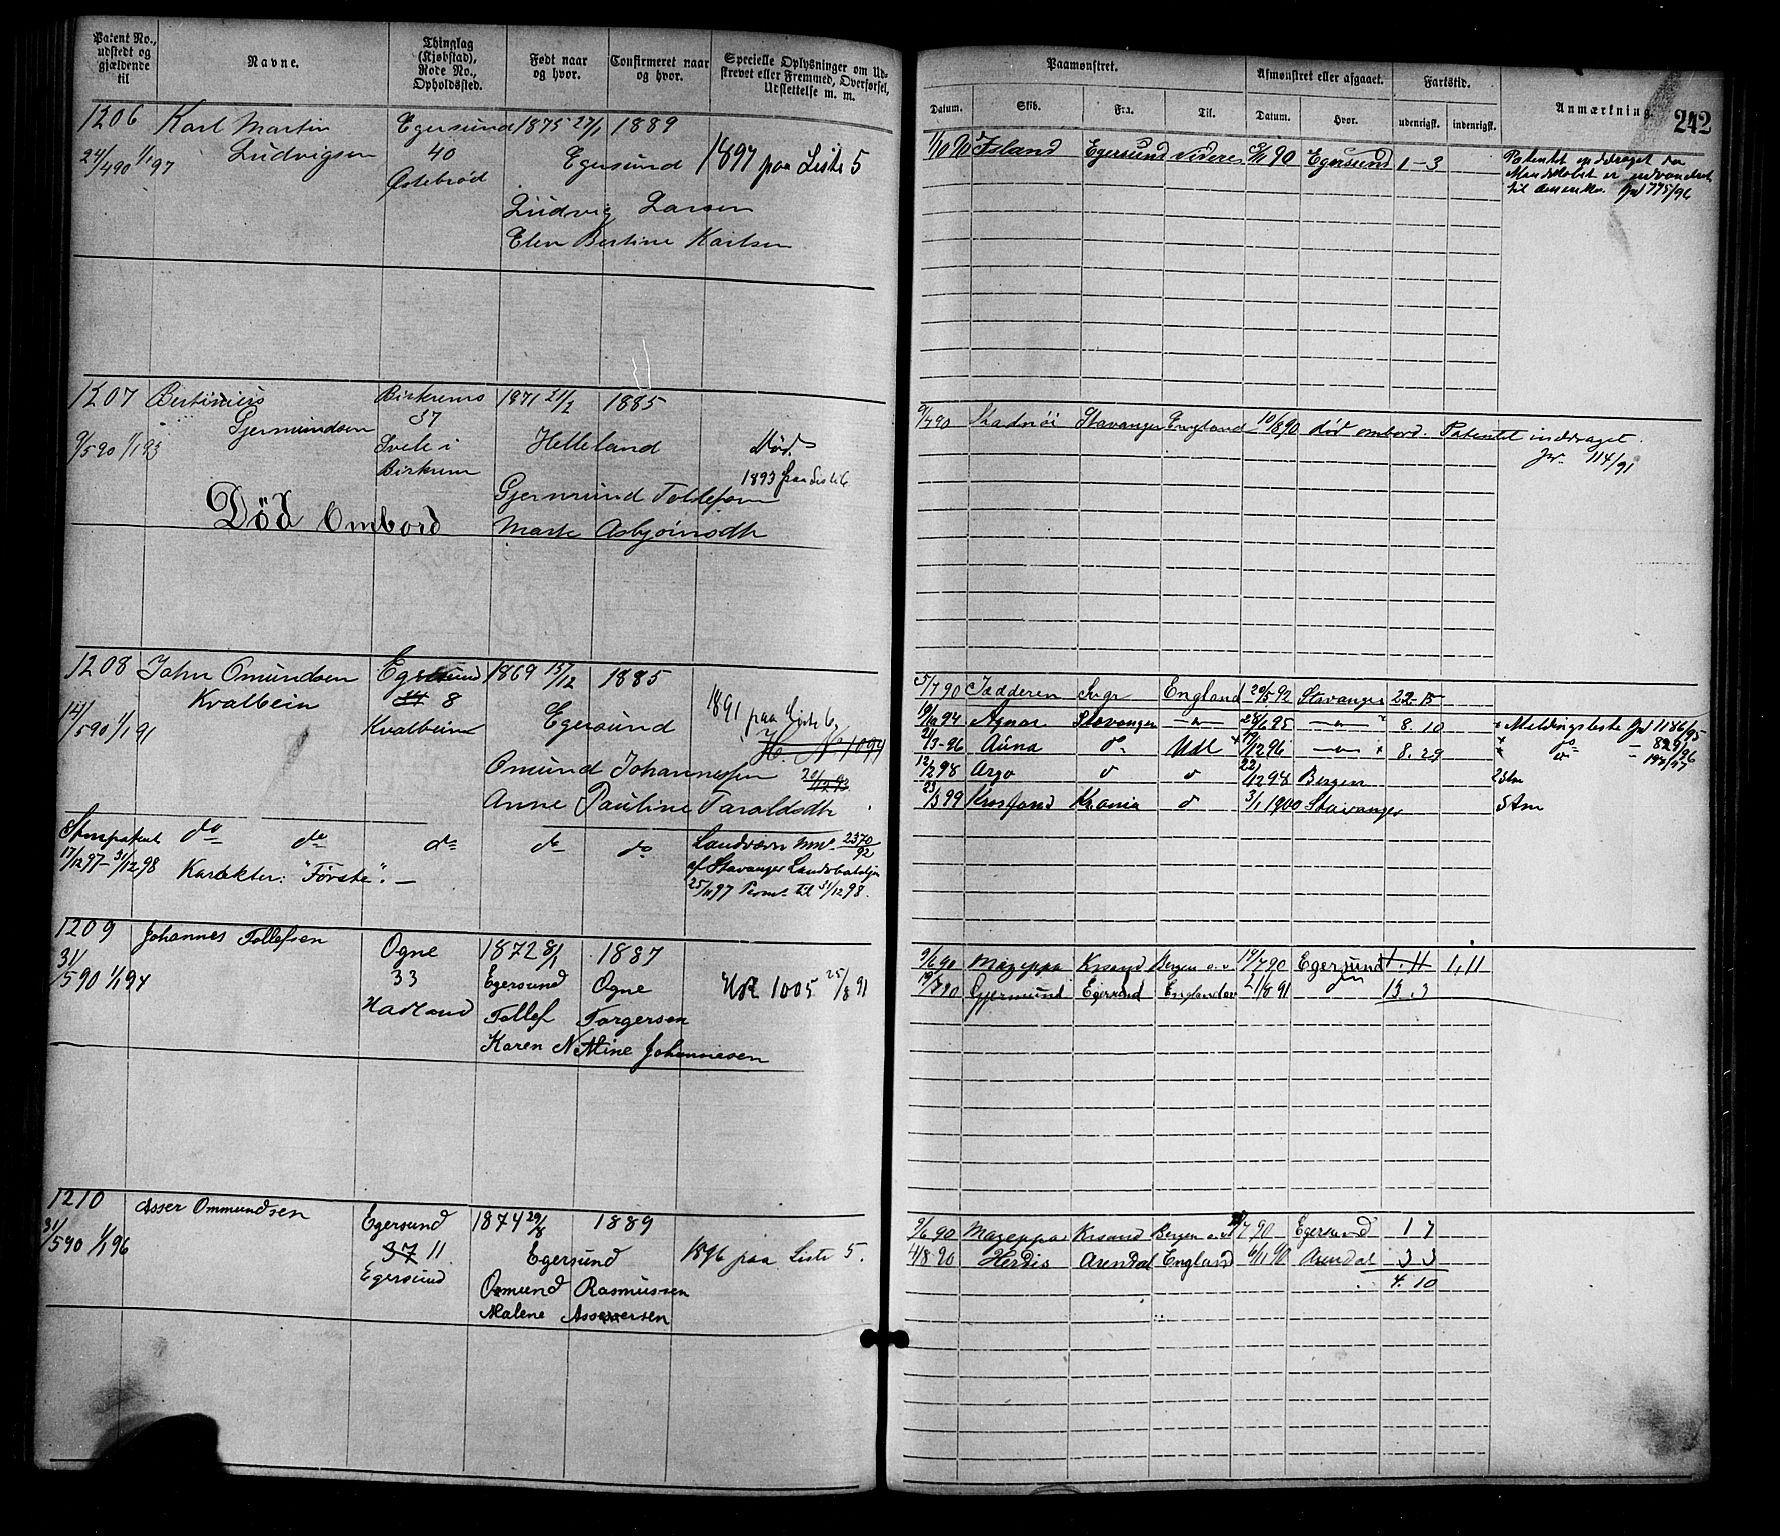 Patent No., udstedt og gjældende til
Navne.
Thinglag (Kjøbstad), Rode No., Opholdssted.
Født naar og hvor.
Confirmeret naar og hvor.
Specielle Oplysninger om Udskrevet eller Fremmed, Overførsel, Udslettelse m. m.
Paamønstret.
Datum.
Skib.
Fra.
Til.
Afmønstret eller afgaaet.
Datum.
Hvor.
Fartstid.
udenrigsk.
indenrigsk.
Anmærkning.
242
1206 Karl Martin Egersund 1875 27/1 1889
24/4 90 1/1 97 Ludvigsen 40 Egersund 1897 paa Liste 5
Østebrød
Ludvig Larsen
Elen Bertine Karlsen
Island Egersund Videre 90 Egersund 1-3
Patentet inddraget da
Mandskabet er udvandret
til Amerika. Jr 775/96
1207 Bertinius Birkrems 1871 21/2 1885
9/5 90 1/1 93 Gjermundsen 37 Helleland Død.
Svele i
Birkrem
1893 paa Liste 6
Gjermund Tollefsen
Død Ombord Marte Asbjørnsdtr
9/7 90 Stavanger England 10/8 90 død ombord. Patentet inddraget.
Jr. 114/91
1208 John Omundsen Egersund 1869 15/12 1885
Kvalbein 34 8
14/5 90 1/1 91 Kvalbein Egersund 1891 paa Liste 6
No 1094
Omund Johannessen 20/12 93
Anne Pauline Taraldsdtr
5/7 90 Jædderen Svgr England 20/5 92 Stavanger 22-15
19/10 94 Agnar Stavanger -"- 28/6 95 -"- 8.10 Meldingsliste Jr 1186/95
21/3-96 Auna do Udl 19/12 96 -"- 8.29 do - 829/96
12/2 98 Argo d d 22/12 98 Bergen
23/3 99 Krosfond Krania d 3/1 1900 Stavanger
do do do do do Landværn 2370/92
17/12 97-31/12 98 Karakter: "Første". — af Stavanger Landv.bataljon
25/11 97 til 31/12 98.
1209 Johannes Tollefsen Ogne 1872 8/1 1887
31/5 90 1/1 94 33 Egersund Ogne HR 1005 25/8 91
Hadland Tollef Torgersen
Karen N Mine Johannesen
9/6 90 Mazeppa Krsand Bergen o.v 19/7 90 Egersund 1.11 1,11
Gjermund Egersund England ov 21/8 91 13.3
1210 Asser Ommundsen Egersund 1874 29/8 1889
31/5 90 1/1 96 37 11 Egersund 1896 paa Liste 5.
Egersund Omund Rasmussen
Malene Assersen
9/6 90 Mazeppa Krsand Bergen o.v 7 90 Egersund 1 7
4/8 90 Herdis Arendal England 6/11 90 Arendal 3 3
4. 10